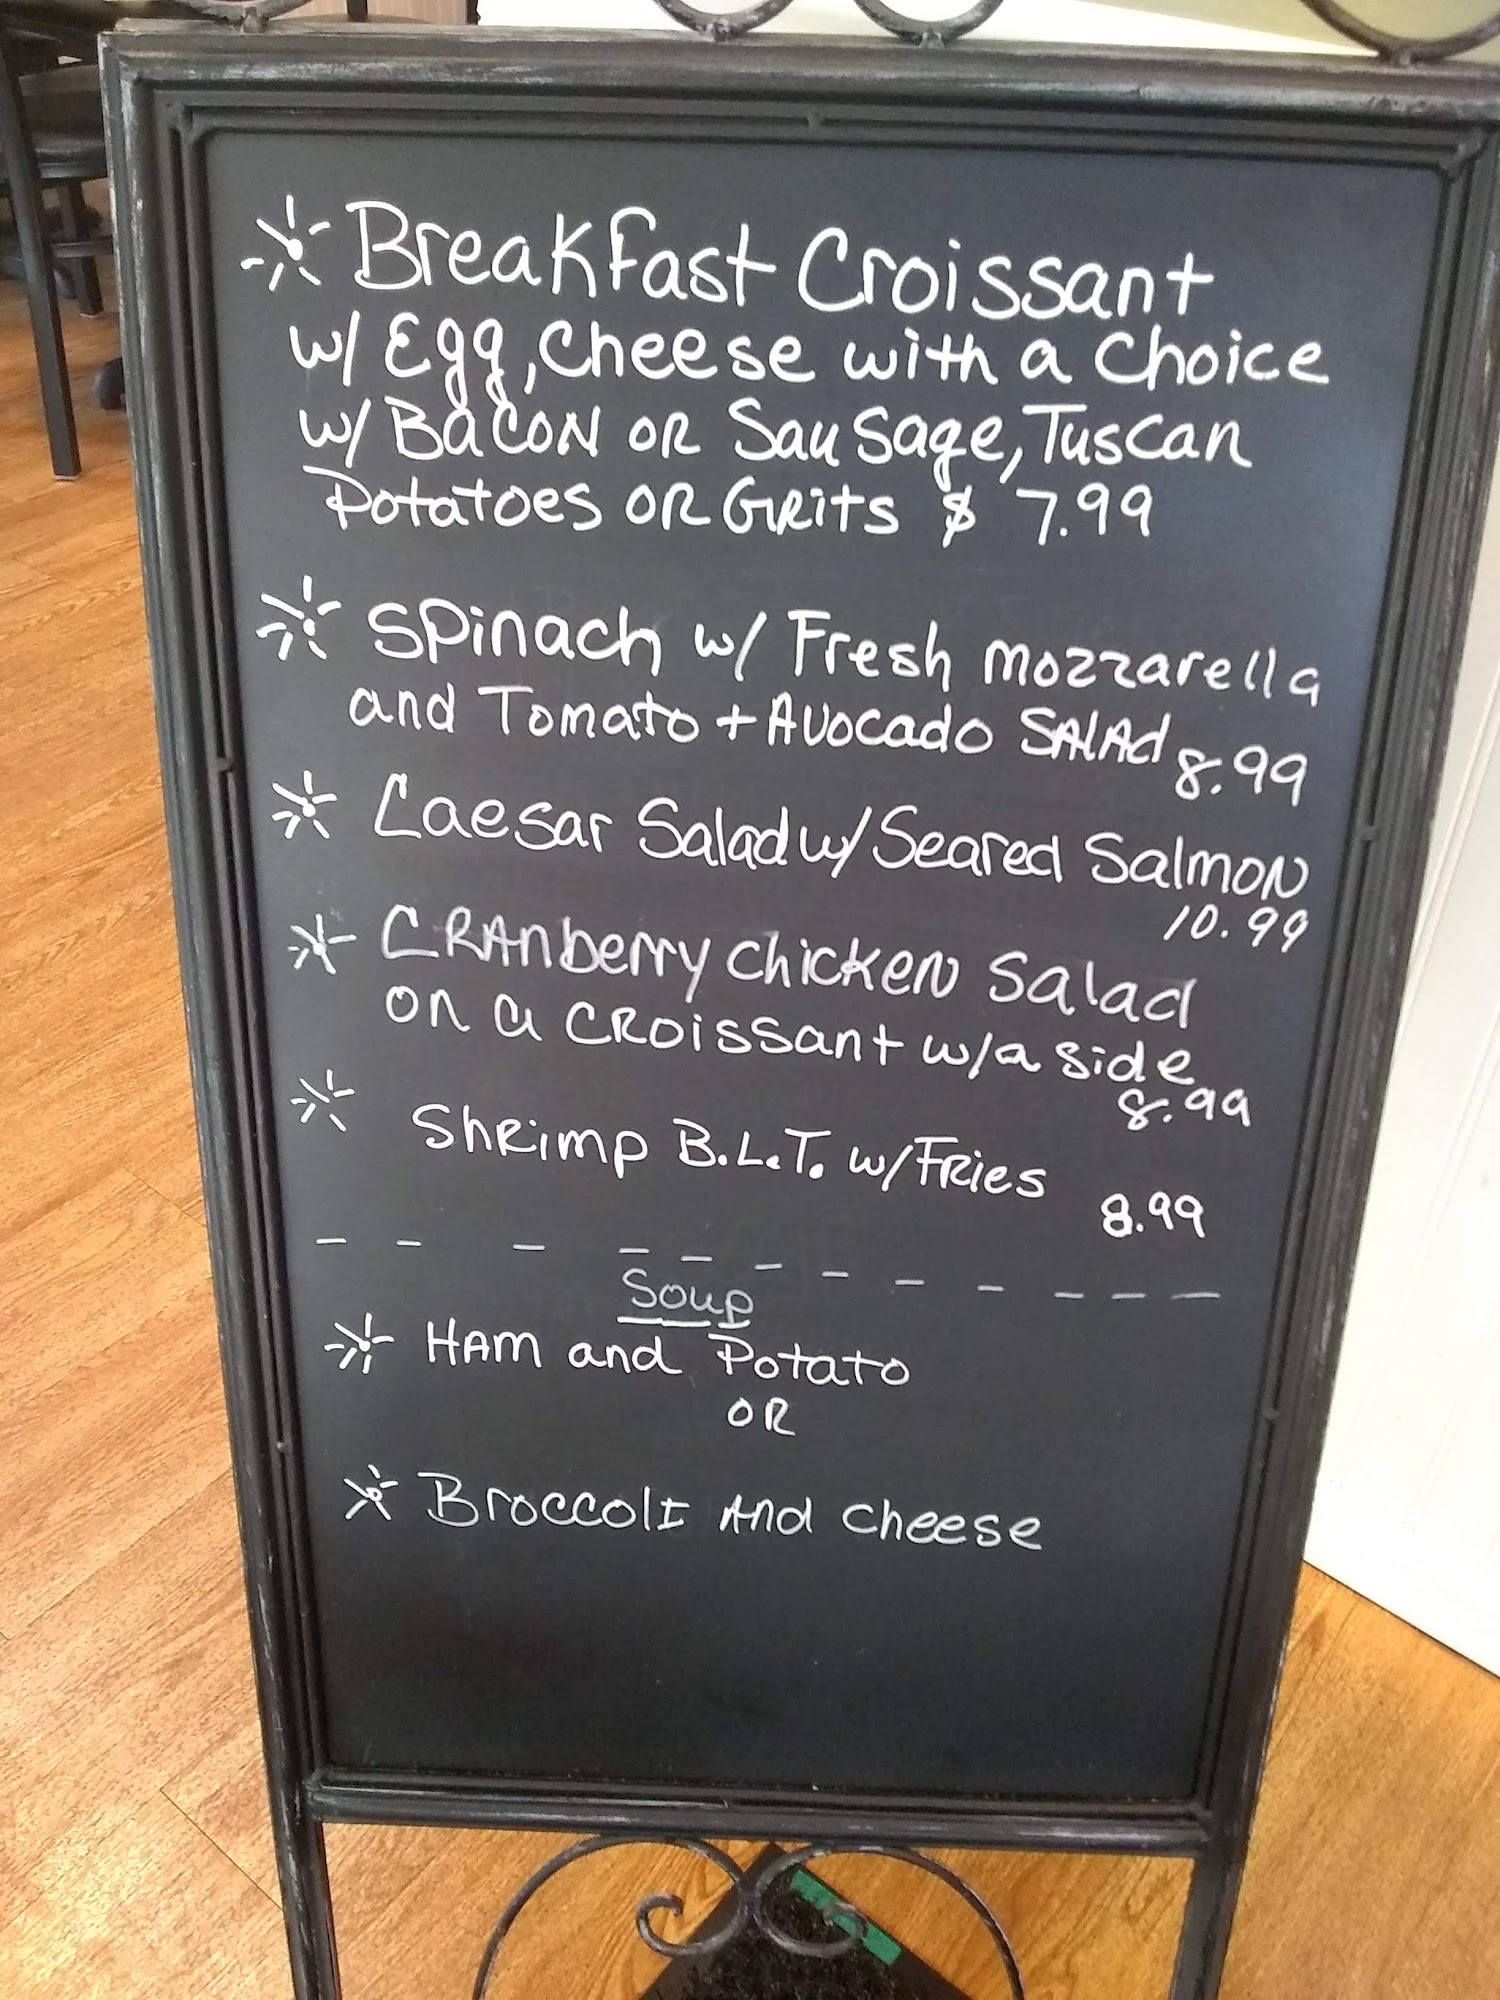 Breakfast Croissant
w/ Egg, Cheese with a Choice
w/ Bacon OR Sausage, Tuscan
Potatoes OR Grits $ 7.99
Spinach w/ Fresh mozzarella
and Tomato + Avocado SALAd 8.99
Caesar Salad w/ Seared Salmon
10.99
CRAnberry Chicken Salad
on a CRoissant w/a side
8.99
Shrimp B.L.T. w/ FRies 8.99
Soup
HAm and Potato
OR
BroccolI And Cheese